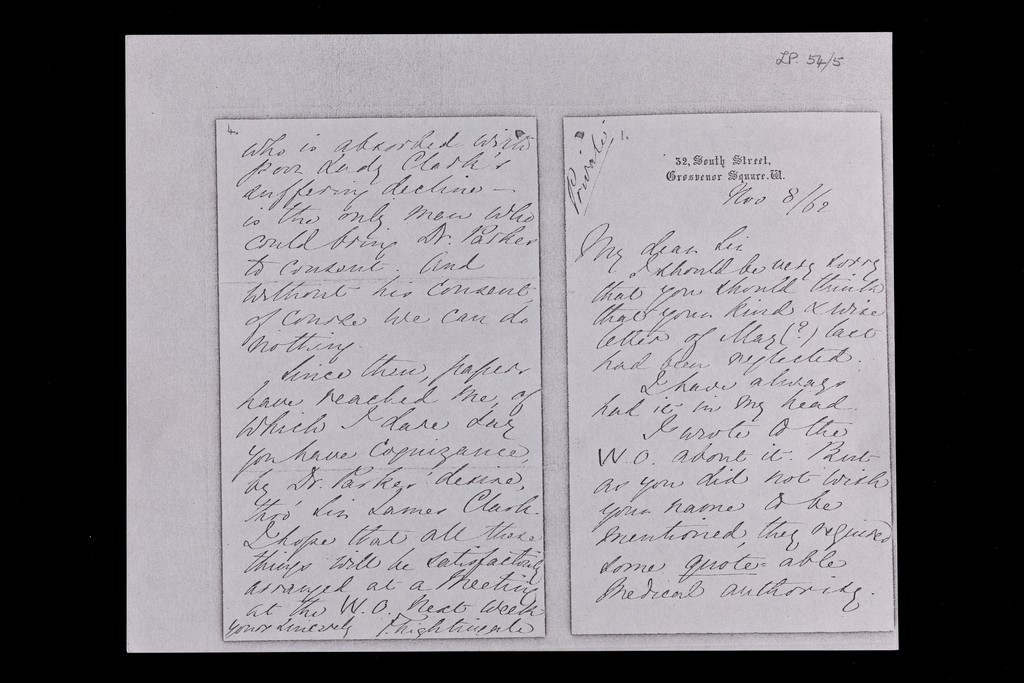 LP. 54/5
4.
who is absorbed with
poor Lady Clark's
suffering decline –
is the only man who
could bring Dr. Parkes
to consent. And
without his consent,
of course we can do
nothing.
Since then, papers
have reached me, of
which I dare say
you have cognizance,
by Dr. Parkes' desire,
thro' Sir James Clark.
I hope that all these
things will be satisfactorily
arranged at a Meeting
at the W.O. next week
yours sincerely F. Nightingale
Private
1.
32, South Street,
Grosvenor Square. W.
Nov 8/62
My dear Sir
I should be very sorry
that you should think
that your kind & wise
letter of May (?) last
had been neglected.
I have always
had it in my head.
I wrote to the
W.O. about it. But
as you did not wish
your name to be
mentioned, they required
some quote-able
Medical authority.